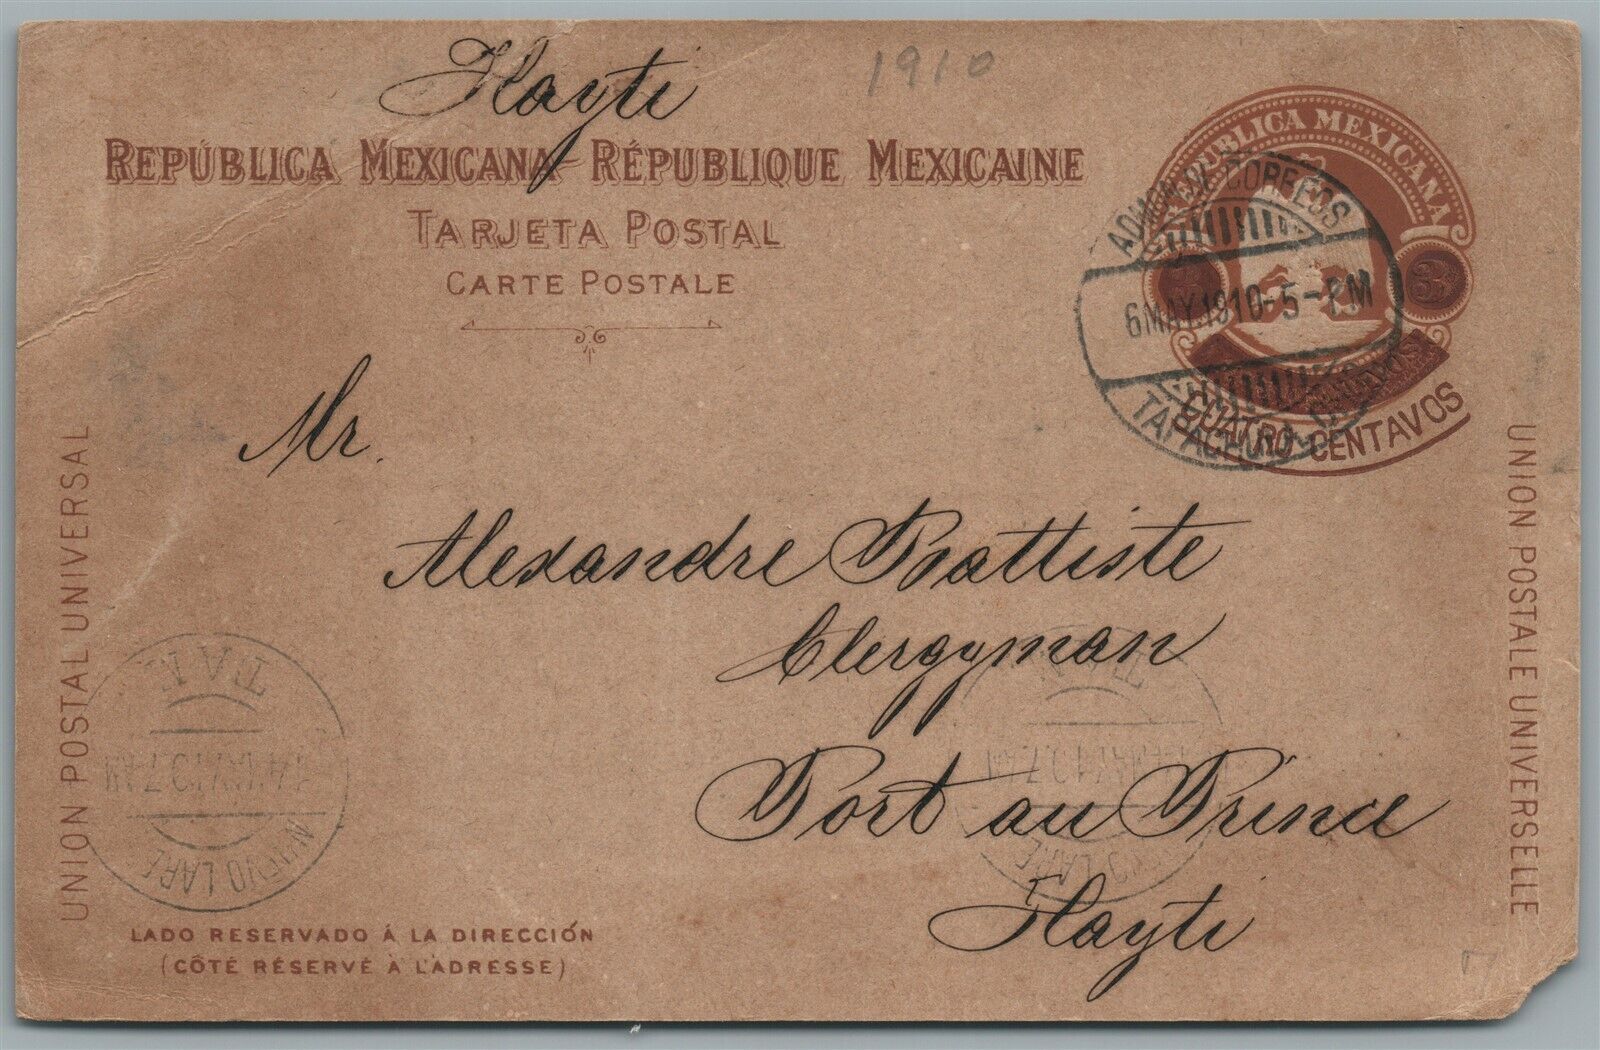 Hayti
1910
REPÚBLICA MEXICANA RÉPUBLIQUE MEXICAINE
TARJETA POSTAL
CARTE POSTALE
REPUBLICA MEXICANA
3 3
ADMON DE CORREOS
6 MAY. 1910-5-PM
TAPACHULA
CUATRO CENTAVOS
Mr.
Alexandre Battiste
Clergyman
Port au Prince
Hayti
UNION POSTAL UNIVERSAL
UNION POSTALE UNIVERSELLE
NUEVO LARE
LADO RESERVADO Á LA DIRECCIÓN
(CÔTÉ RÉSERVÉ À L'ADRESSE)